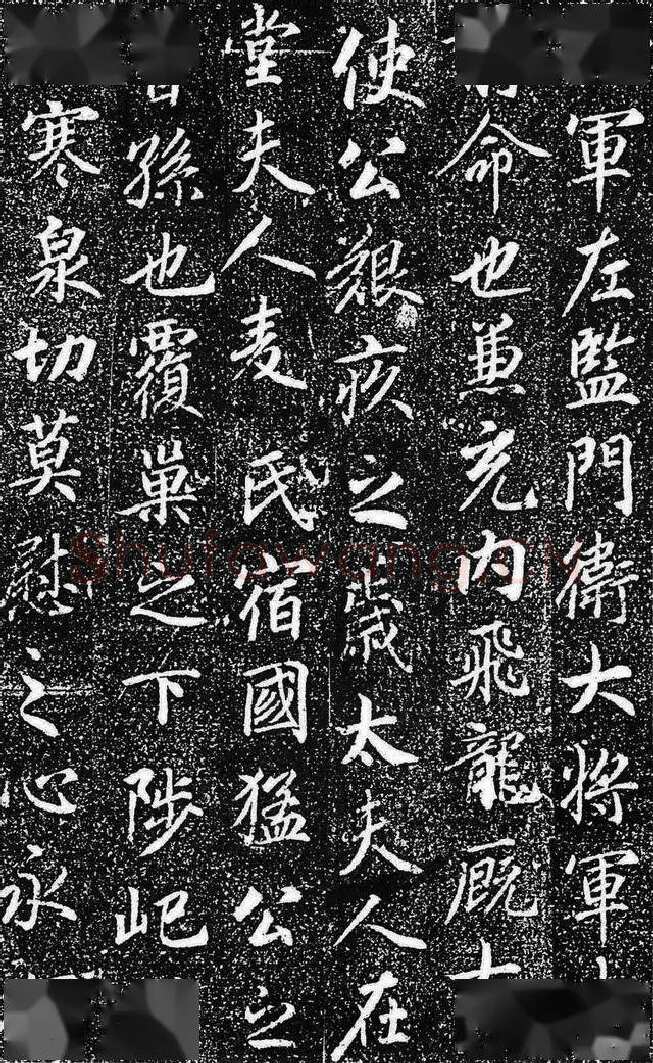 軍左監門衛大將軍
命也兼充內飛龍厩
使公艱疚之歲太夫人在
堂夫人麦氏宿國猛公之
曾孫也覆巢之下陟屺
寒泉切莫慰之心永
shufawang.CN